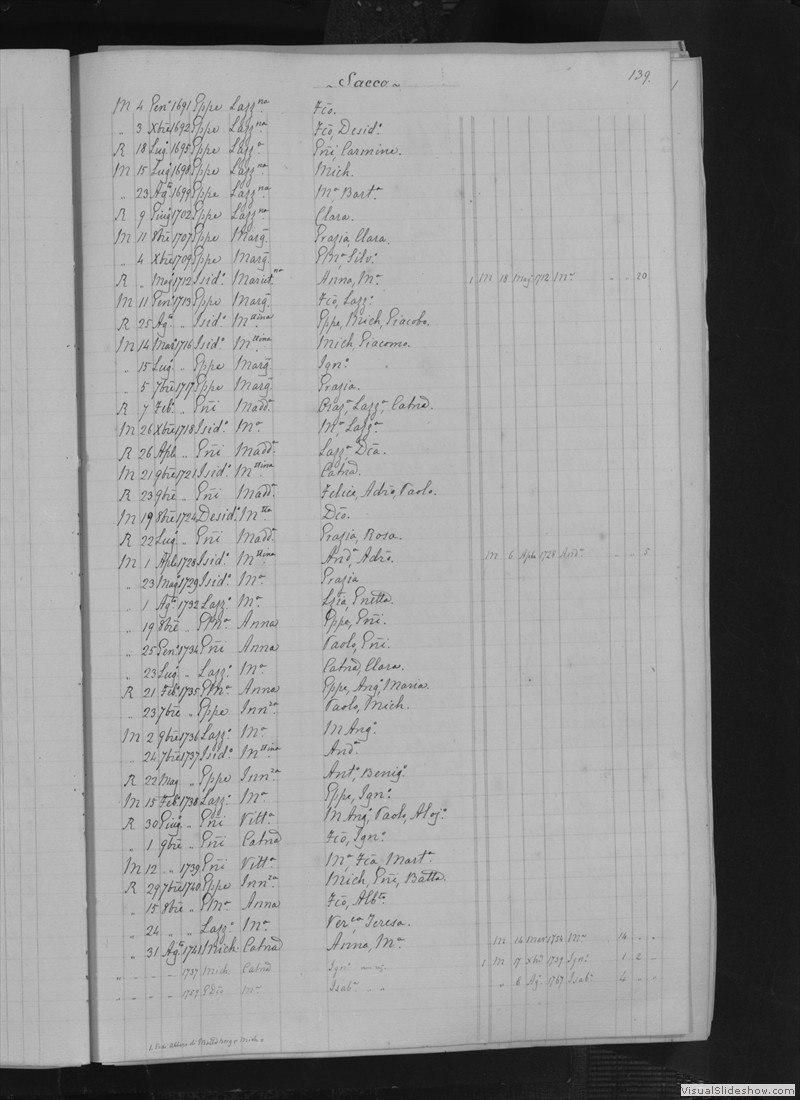 ~ Sacco ~ 139.
M 4 Genº 1691 Gppe Lazzna Fcõ.
" 3 Xbre 1692 Gppe Lazzna Fcõ, Desidº
R 18 Lugº 1695 Gppe Lazza Gñi, Carmine.
M 15 Lugº 1698 Gppe Lazzna Mich.
" 23 Agto 1699 Gppe Lazzna Ma Barta
R 9 Giugº 1702 Gppe Lazzna Clara.
M 11 8bre 1707 Gppe Marg. Grazia, Clara.
" 4 Xbre 1709 Gppe Marg. GMa, Silvº
R " Magº 1712 Isidº Anna, Ma 1 M 18 Magº 1712 Ma " " 20
M 11 Genº 1713 Gppe Marg. Fcõ, Lazzº
R 25 Agto " Isidº Mttina Gppe, Mich, Giacobo.
M 14 Marº 1716 Isidº Mttina Mich, Giacomo.
" 15 Lugº " Gppe Marg. Ignº
" 5 7bre 1717 Gppe Marg. Grazia.
R 7 Febº " Gñi Madda Lazza, Catnã.
M 26 Xbre 1718 Isidº Ma Ma, Lazza
R 26 Aple " Gñi Madda Lazza, Dcã.
M 21 9bre 1721 Isidº Mttina Catnã.
R 23 9bre " Gñi Madda Felice, Adrõ, Paolo.
M 19 8bre 1724 Desidº Mtta Dcõ.
R 22 Lugº " Gñi Madda Grazia, Rosa.
M 1 Aple 1728 Isidº Mttina Anda, Adrõ. M 6 Aple 1728 Anda " " 5
" 23 Magº 1729 Isidº Ma Grazia
" 1 Agto 1732 Lazzº Ma Gnetta.
" 19 8bre " GMa Anna Gppe, Gñi.
" 25 Genº 1734 Gñi Anna Paolo, Gñi.
" 23 Lugº " Lazzº Ma Catnã, Clara.
R 21 Febº 1735 GMa Anna Gppe, Angº, Maria.
" 23 7bre " Gppe Innza Paolo, Mich.
M 2 9bre 1736 Lazzº Ma M Angº
" 24 7bre 1737 Isidº Mttina Anda
R 22 Mag " Gppe Innza Antº, Benigº
M 15 Febº 1738 Lazzº Ma Gppe, Ignº
R 30 Giugº " Gñi Vitta M Angº, Paolo, Alojº
" 1 9bre " Gñi Catnã Fcõ, Ignº
M 12 " " 1739 Gñi Vitta Ma, Fcã, Marta
R 29 7bre 1740 Gppe Innza Mich, Gñi, Batta.
" 15 8bre " GMa Anna Fcõ, Albto
" 24 " " Lazzº Ma Verca, Teresa.
" 31 Agto 1741 Mich Catnã Anna, Ma M 14 Marº 1754 Ma " 14 " "
" " " " 1737 Mich Catnã Ignº 1 M 17 Xbre 1739 Ignº " 1 2 "
" " " " 1757 Ma Isaba " " 6 Agº 1767 Isaba 4 " "
VisualSlideshow.com